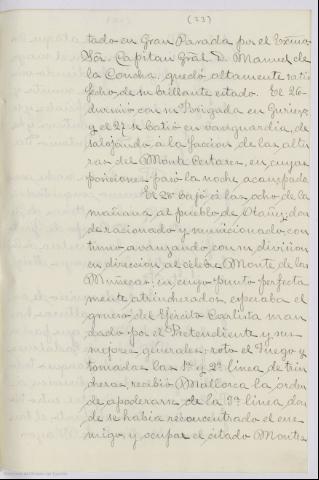 (23)
tado en Gran Parada por el Excmo
Sôr. Capitan Gral. D. Manuel de
la Concha, quedó altamente satis
fecho, de su brillante estado. El 26-
durmió con su Brigada en Guriezo
y el 27 se batió en vanguardia, de
salojando á la faccion de las altu
ras del Monte Cestares, en cuyas
posiciones pasó la noche acampado
El 28 bajó á las ocho de la
mañana al pueblo de Otañez, don
de racionado y municionado, con
tinuó avanzando con su division
en direccion al célebre Monte de las
Muñecas, en cuyo punto perfecta
mente atrincherados, esperaba el
grueso del Ejército Carlista man
dado por el Pretendiente y sus
mejores generales; roto el fuego y
tomadas las 1ª y 2ª linea de trin
cheras, recibió Mallorca la orden
de apoderarse de la 3ª linea, don
de se habia reconcentrado el ene
migo, y ocupar el citado Monte.